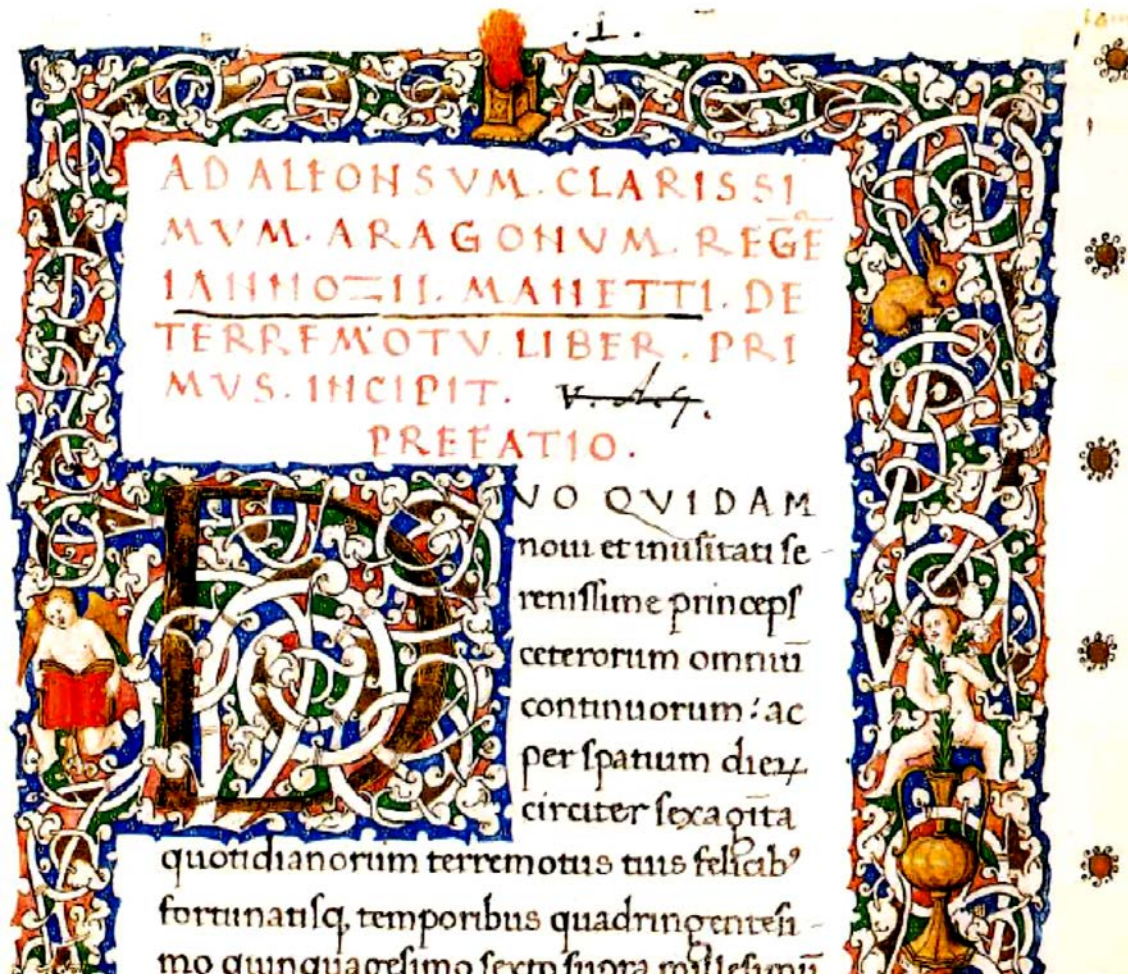 .1.
AD ALFONSVM. CLARISSI
MVM. ARAGONVM. REGẼ
IANNOZII. MANETTI. DE
TERREMOTV. LIBER. PRI
MVS. INCIPIT. v. d. g.
PREFATIO.
DVO QVIDAM
noui et inusitati se-
renissime princeps
ceterorum omniū
continuorum: ac
per spatium dieꝝ
circiter sexagīta
quotidianorum terremotus tuis felicibꝰ
fortunatisq; temporibus quadringentesi-
mo quinquagesimo sexto supra millesimū